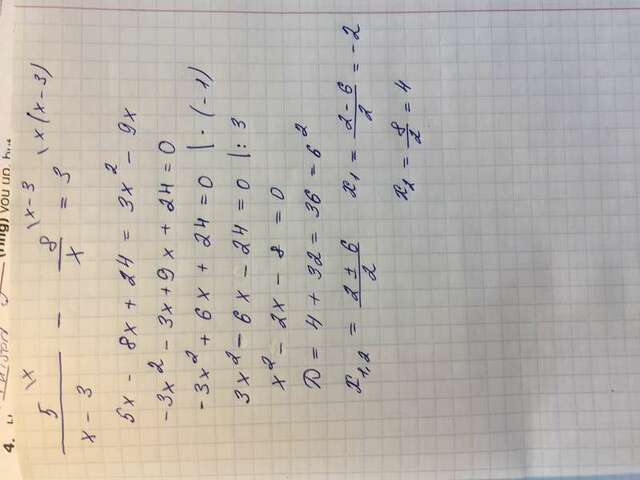 4.
(ring) you up, but
5 \x / x - 3 - 8 \x-3 / x = 3 \x(x-3)
5x - 8x + 24 = 3x² - 9x
-3x² - 3x + 9x + 24 = 0
-3x² + 6x + 24 = 0 |·(-1)
3x² - 6x - 24 = 0 |: 3
x² - 2x - 8 = 0
D = 4 + 32 = 36 = 6²
x₁,₂ = 2 ± 6 / 2 x₁ = 2 - 6 / 2 = -2
x₂ = 8 / 2 = 4